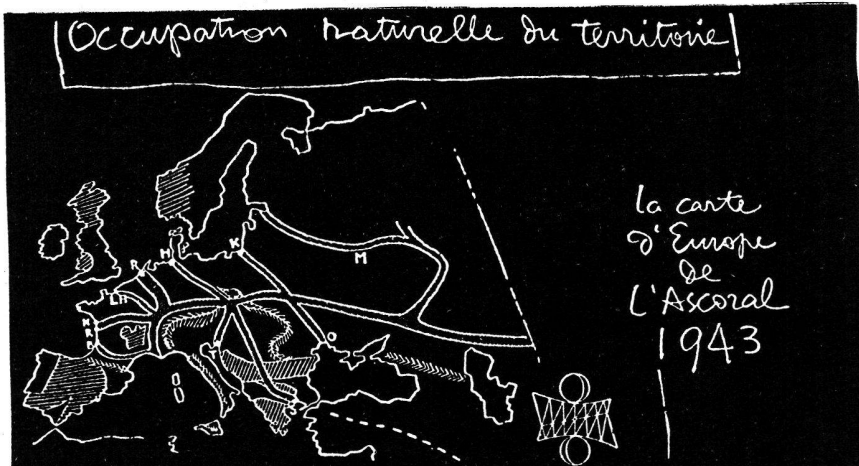 Occupation naturelle du territoire
la carte
d'Europe
de
L'Ascoral
1943
K
H
R
M
LH
N
R
B
O
S